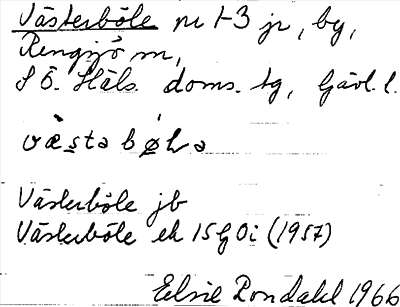 Västerböle nr 1-3 jr, by,
Rengsjö sn,
S Ö. Häls. doms. tg, Gävl. l.
Västerböle jb
Västerböle ek 15G 0i (1957)
Elsie Rondahl 1966